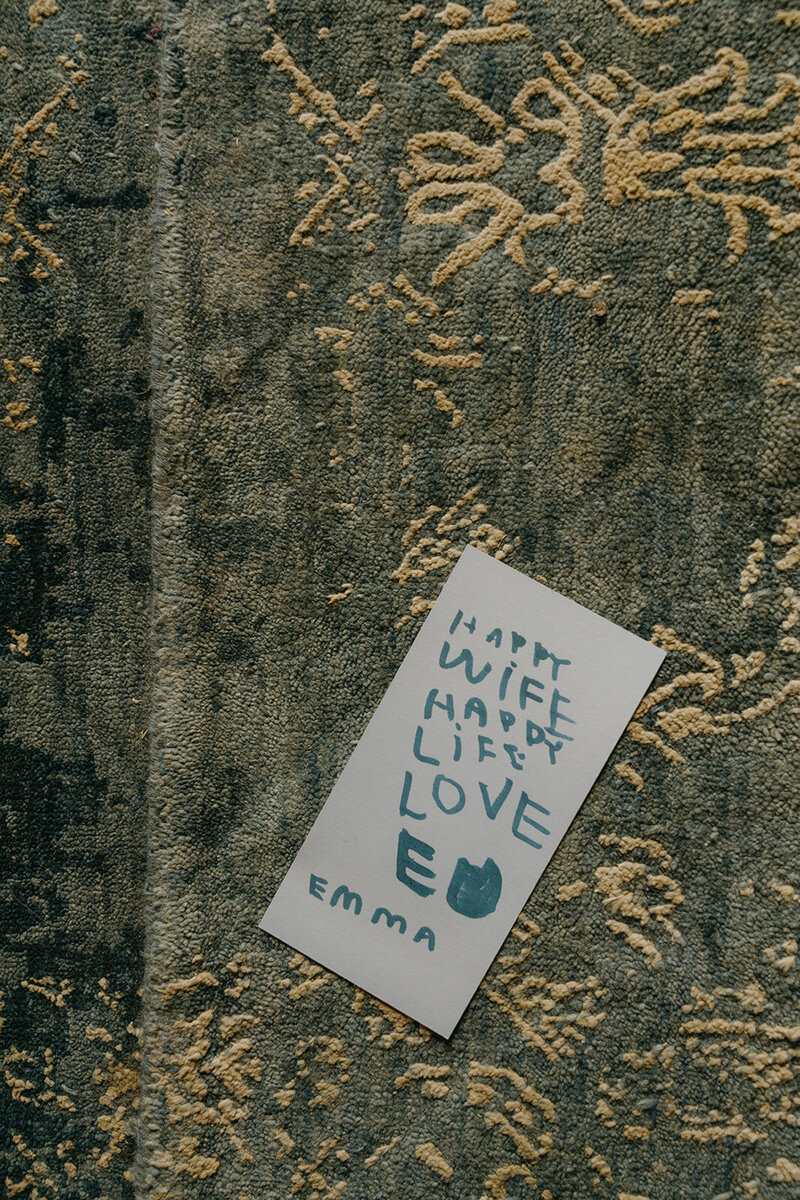 HAPPY
WiFE
HAPPY
LiFE
LOVE
E
EMMA